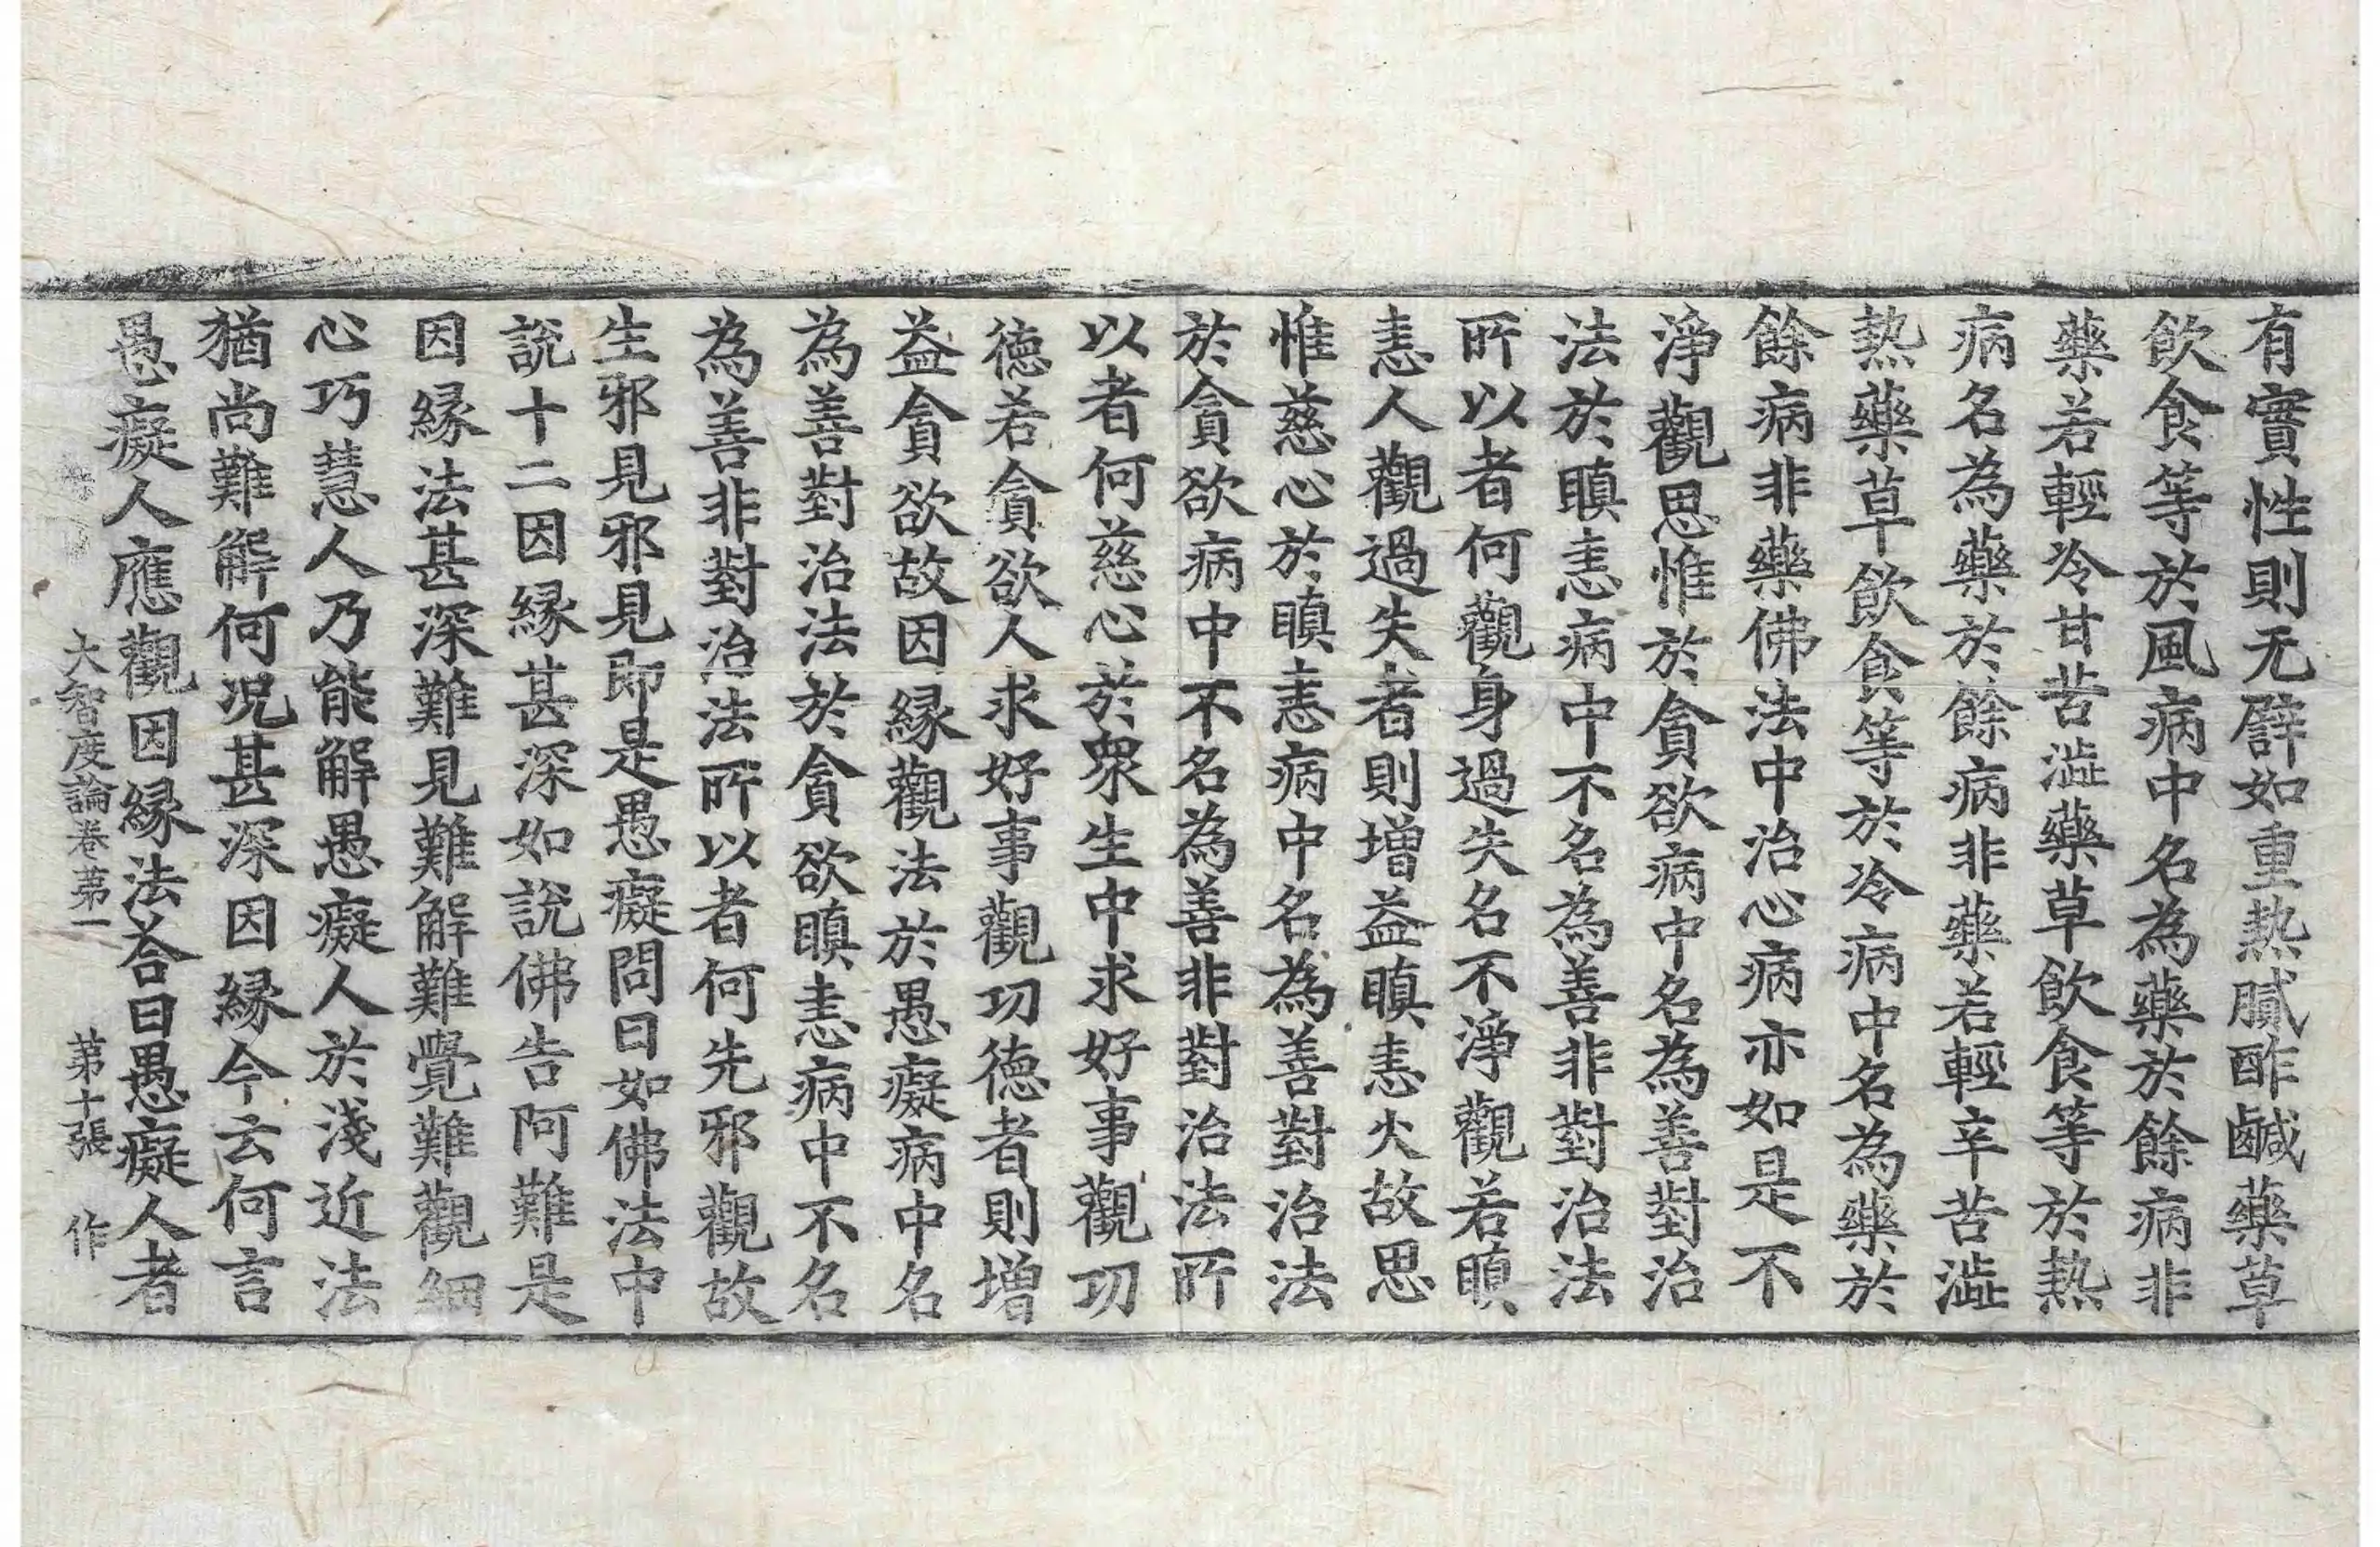 有實性則无譬如重熱膩酢鹹藥草
飲食等於風病中名為藥於餘病非
藥若輕冷甘苦澁藥草飲食等於熱
病名為藥於餘病非藥若輕辛苦澁
熱藥草飲食等於冷病中名為藥於
餘病非藥佛法中治心病亦如是不
淨觀思惟於貪欲病中名為善對治
法於瞋恚病中不名為善非對治法
所以者何觀身過失名不淨觀若瞋
恚人觀過失者則增益瞋恚火故思
惟慈心於瞋恚病中名為善對治法
於貪欲病中不名為善非對治法所
以者何慈心於衆生中求好事觀功
德若貪欲人求好事觀功德者則增
益貪欲故因縁觀法於愚癡病中名
為善對治法於貪欲瞋恚病中不名
為善非對治法所以者何先邪觀故
生邪見邪見即是愚癡問曰如佛法中
說十二因縁甚深如說佛告阿難是
因縁法甚深難見難解難覺難觀細
心巧慧人乃能解愚癡人於淺近法
猶尚難解何况甚深因縁今云何言
愚癡人應觀因縁法荅曰愚癡人者
大智度論卷第一 第十張 作